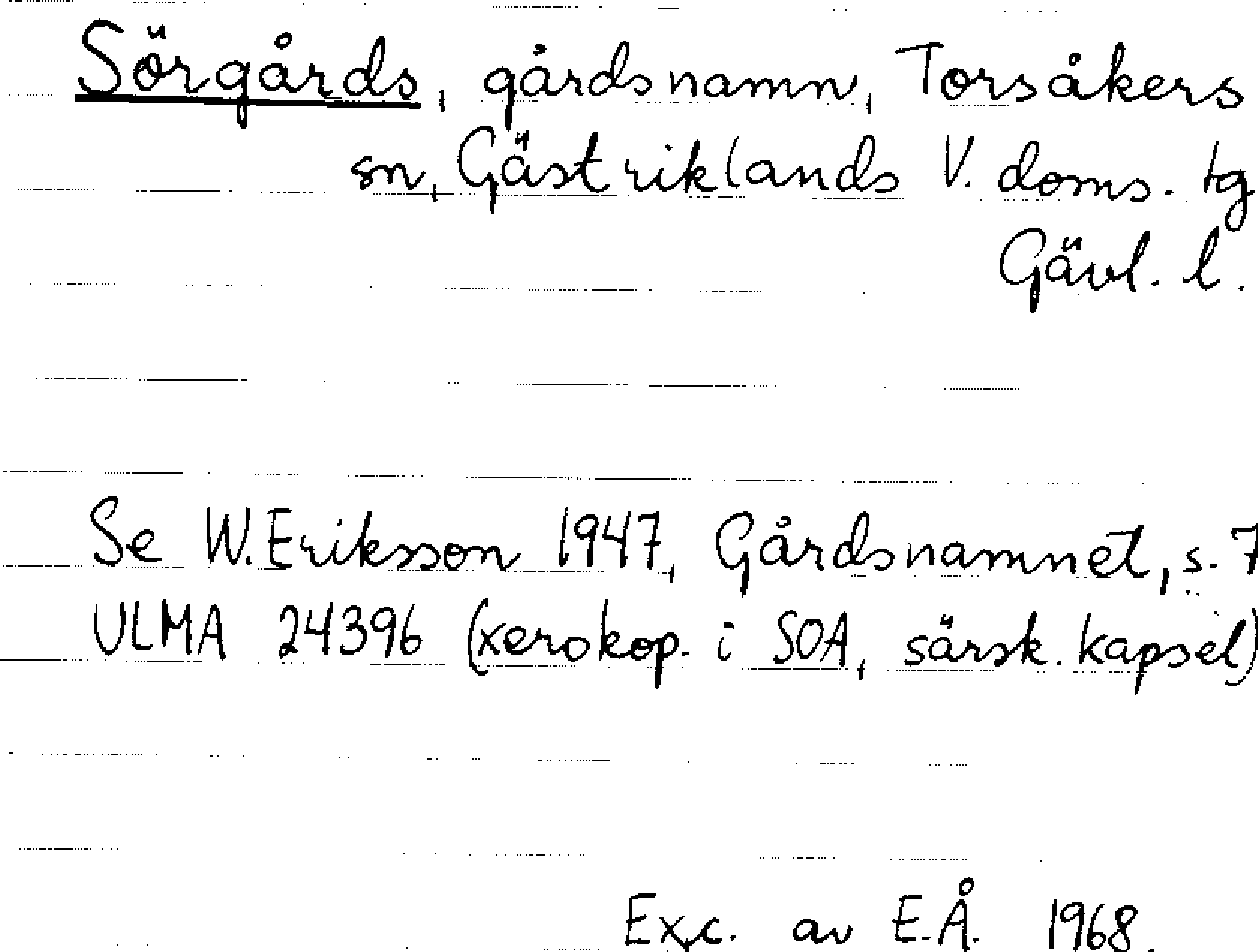 Sörgårds, gårdsnamn, Torsåkers
sn, Gästriklands V. doms. tg
Gävl. l.
Se W. Eriksson 1947, Gårdsnamnet, s. 7
ULMA 24396 (xerokop. i SOA, särsk. kapsel)
Exc. av E.Å. 1968.